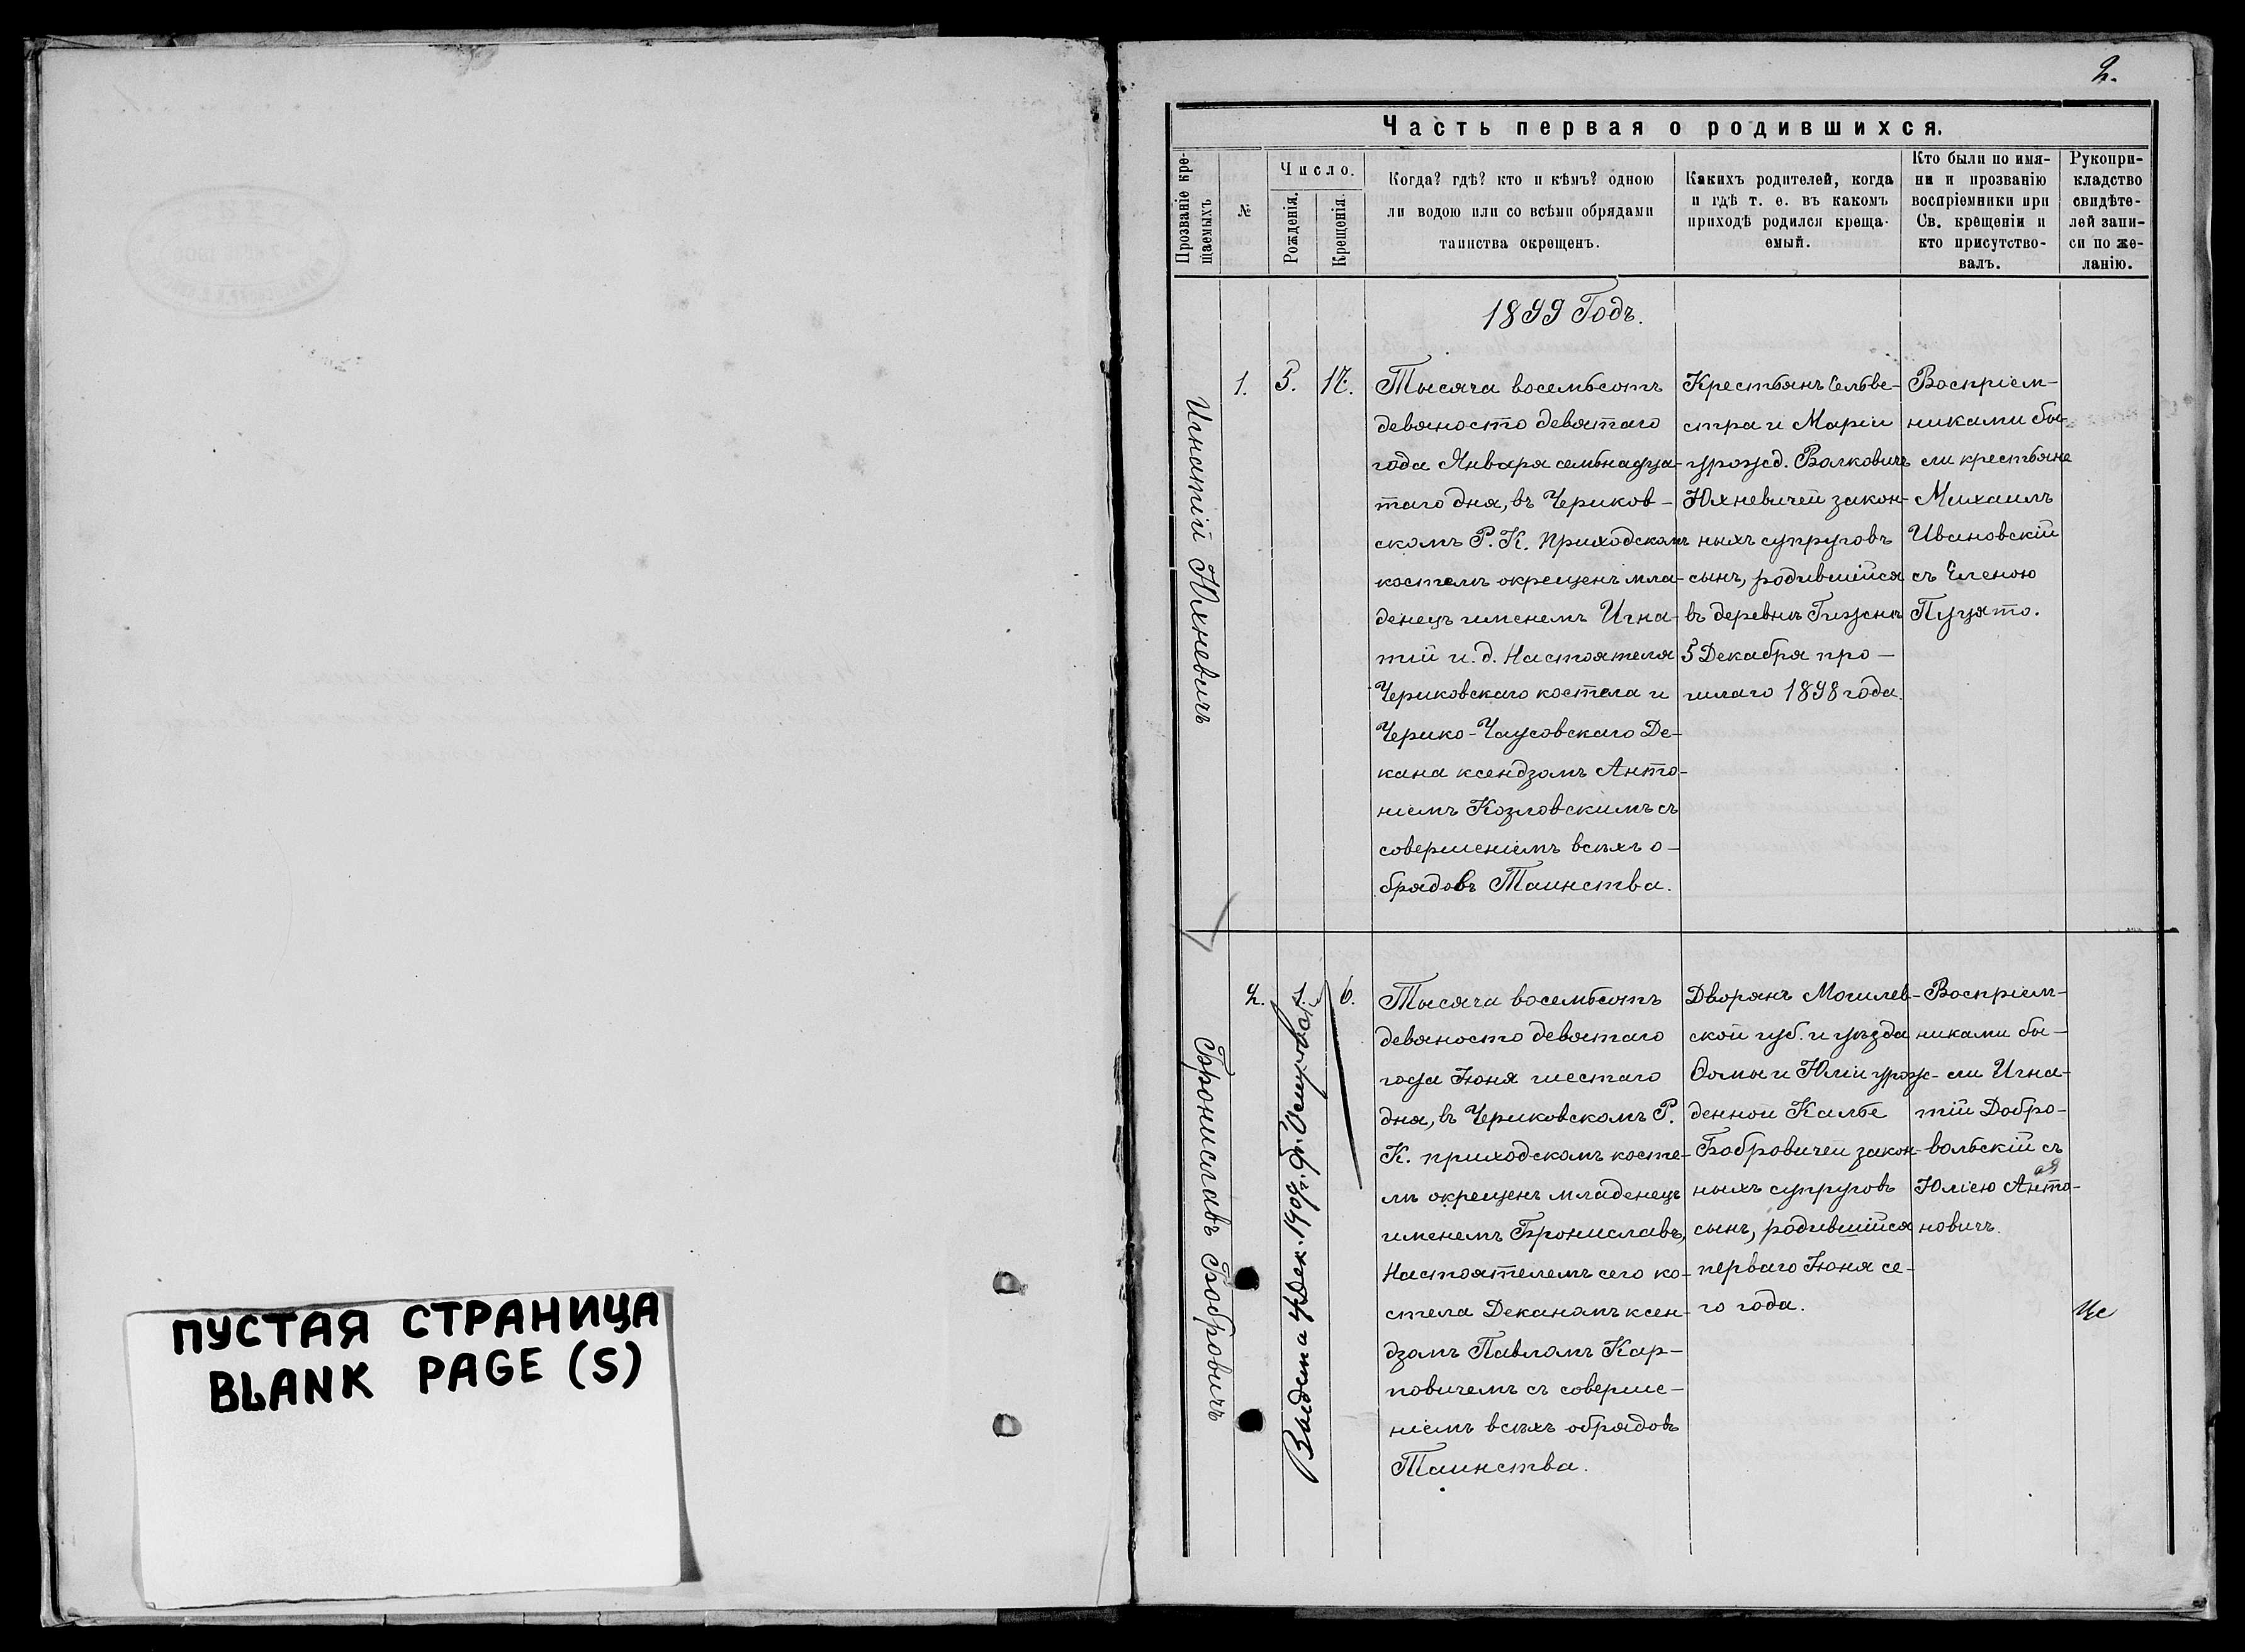 ПУСТАЯ СТРАНИЦА
BLANK PAGE (S)
2.
Часть первая о родившихся.
Прозваніе кре-
щаемыхъ
№
Число.
Рожденія.
Крещенія.
Когда? гдѣ? кто и кѣмъ? одною
ли водою или со всѣми обрядами
таинства окрещенъ.
Какихъ родителей, когда
и гдѣ т. е. въ какомъ
приходѣ родился креща-
емый.
Кто были по имя-
ни и прозванію
воспріемники при
Св. крещеніи и
кто присутство-
валъ.
Рукопри-
кладство
свидѣте-
лей запи-
си по же-
ланію.
1899 Годъ.
Игнатій Юхневичъ
1.
5.
17.
Тысяча восемьсотъ
девяносто девятаго
года Января семьнадца-
таго дня, въ Чериков-
скомъ Р. К. приходскомъ
костелѣ окрещенъ мла-
денецъ именемъ Игна-
тій и. д. Настоятеля
Чериковскаго костела и
Черико-Чаусовскаго Де-
кана ксендзомъ Анто-
ніемъ Козловскимъ съ
совершеніемъ всѣхъ о-
брядовъ Таинства.
Крестьянъ Сельве-
стра и Маріи
урожд. Волковичъ
Юхневичей закон-
ныхъ супруговъ
сынъ, родившійся
въ деревнѣ Гижнѣ
5 Декабря про-
шлаго 1898 года.
Воспріем-
никами бы-
ли крестьяне
Михаилъ
Ивановскій
съ Еленою
Пуцято.
Брониславъ Бобровичъ
2.
1.
6.
Выдена 4 Дек. 1909 г.
Тысяча восемьсотъ
девяносто девятаго
года Іюня шестаго
дня, въ Чериковскомъ Р.
К. приходскомъ косте-
лѣ окрещенъ младенецъ
именемъ Брониславъ,
Настоятелемъ сего ко-
стела Деканомъ ксен-
дзомъ Павломъ Кар-
повичемъ съ соверше-
ніемъ всѣхъ обрядовъ
Таинства.
Дворянъ Могилев-
ской губ. и уѣзда
Ѳомы и Юліи урож-
денной Кильбе
Бобровичей закон-
ныхъ супруговъ
сынъ, родившійся
перваго Іюня се-
го года.
Воспріем-
никами бы-
ли Игна-
тій Добро-
вольскій съ
Юліею Анто-
новичъ.